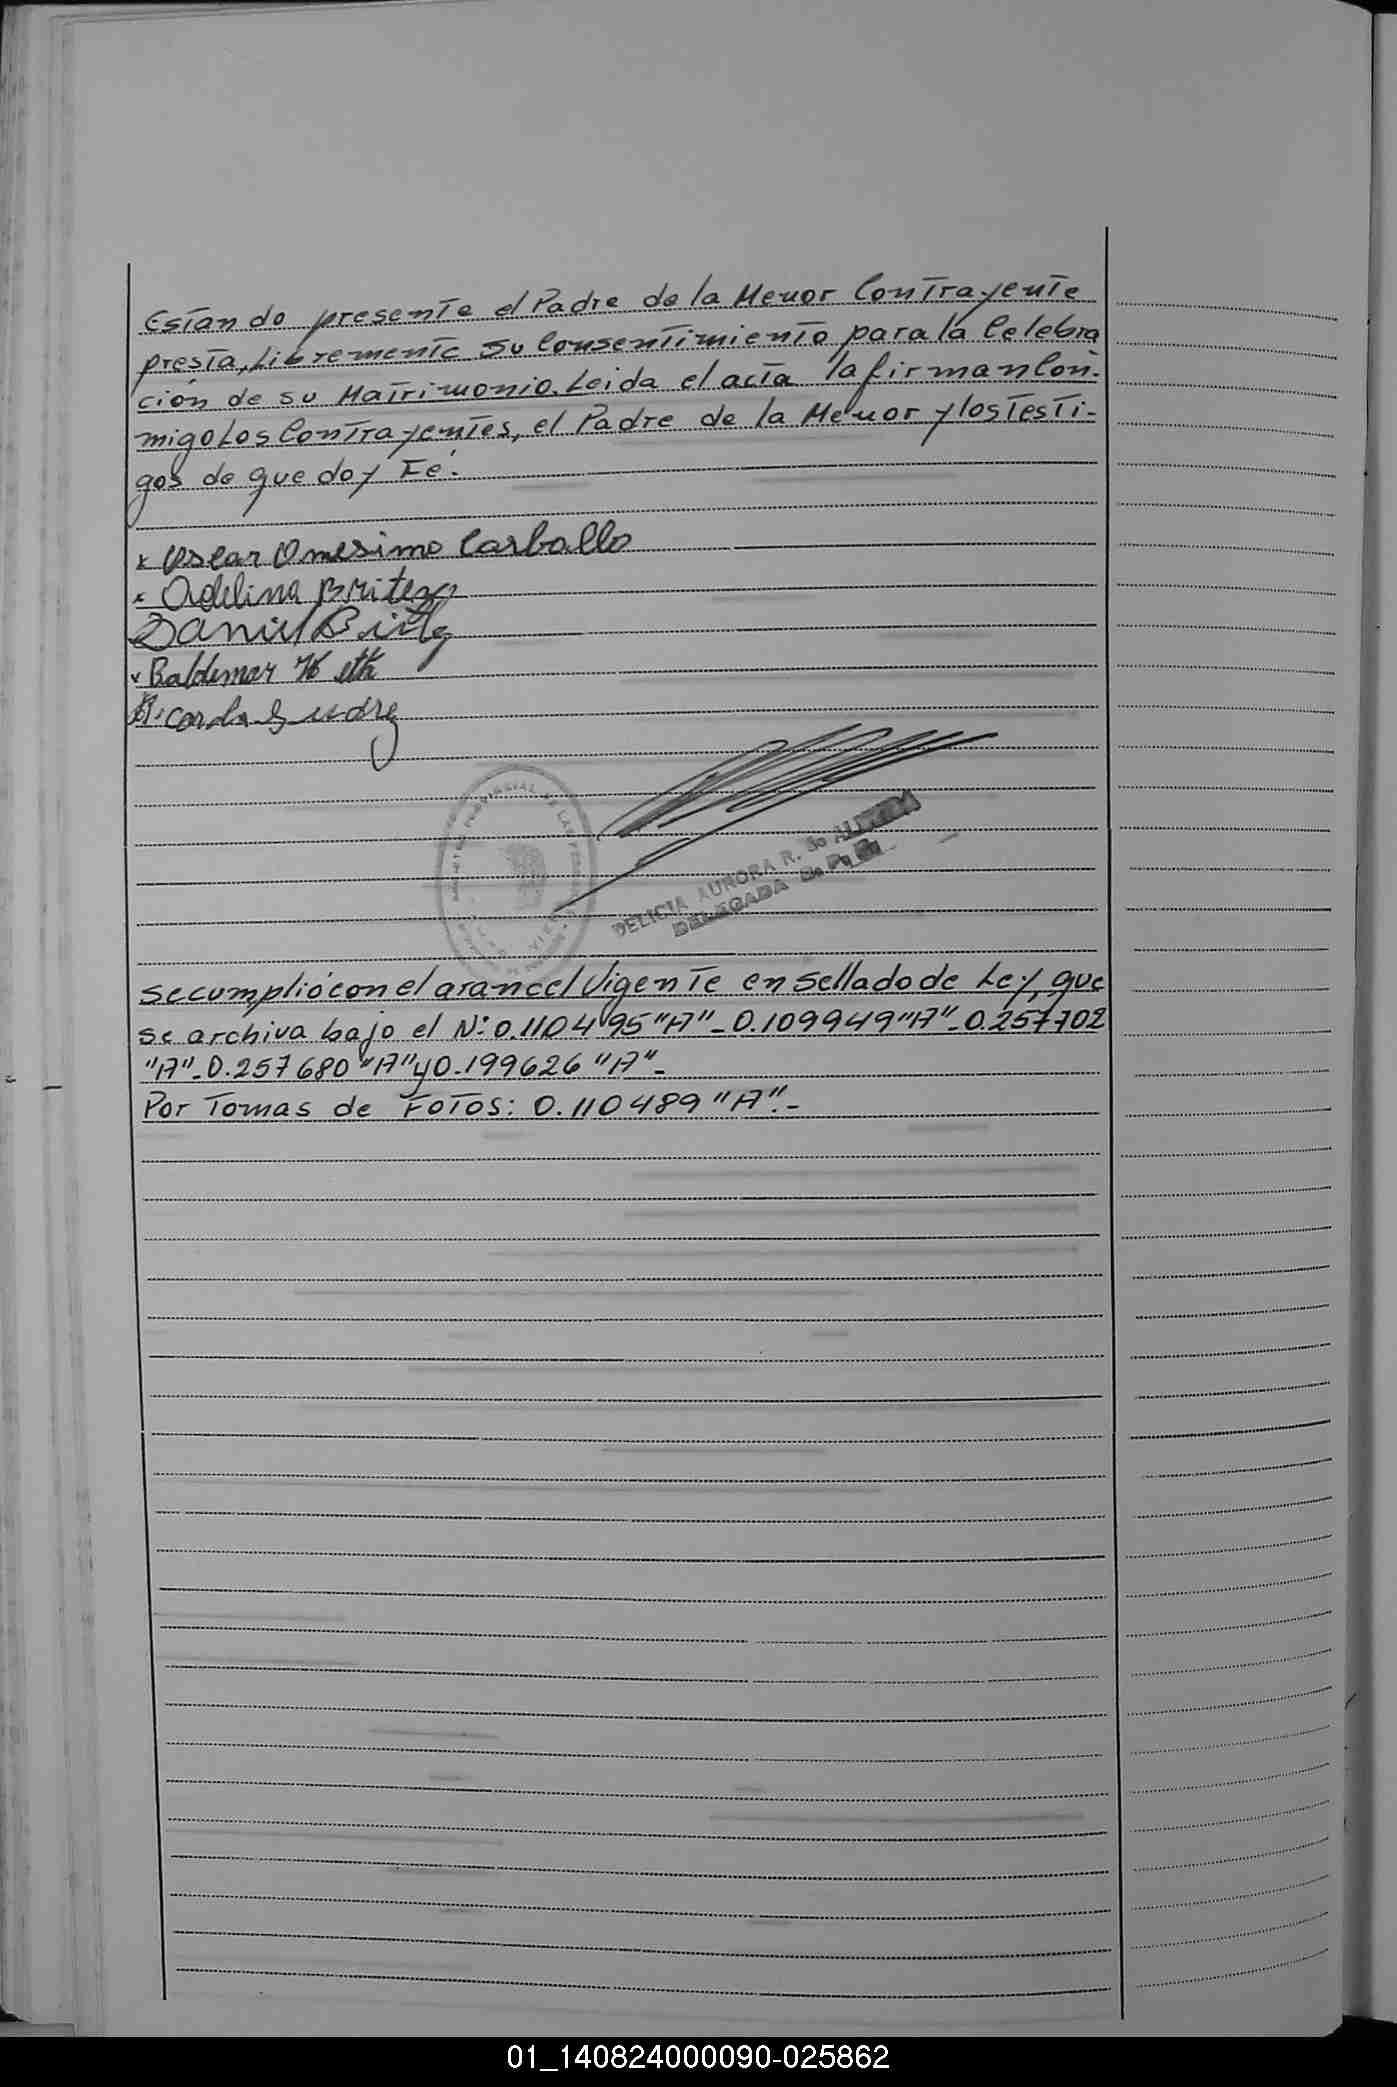 Estando presente el Padre de la Menor Contrayente
presta, Libremente su Consentimiento para la Celebra
ción de su Matrimonio. Leida el acta la firman Con-
migo Los Contrayentes, el Padre de la Menor y los Testi-
gos de que doy Fé.
x Oscar Onesimo Carballo
x Adelina Britez
Daniel Britez
x Baldemar
Ricardo
DELICIA AURORA R. De ALMEIDA
DELEGADA
se cumplió con el arancel Vigente en Sellado de Ley, que
se archiva bajo el Nº: 0.110495 "A" - 0.109949 "A" - 0.257702
"A" - 0.257680 "A" y 0.199626 "A" -
Por Tomas de Fotos: 0.110489 "A". -
01_140824000090-025862